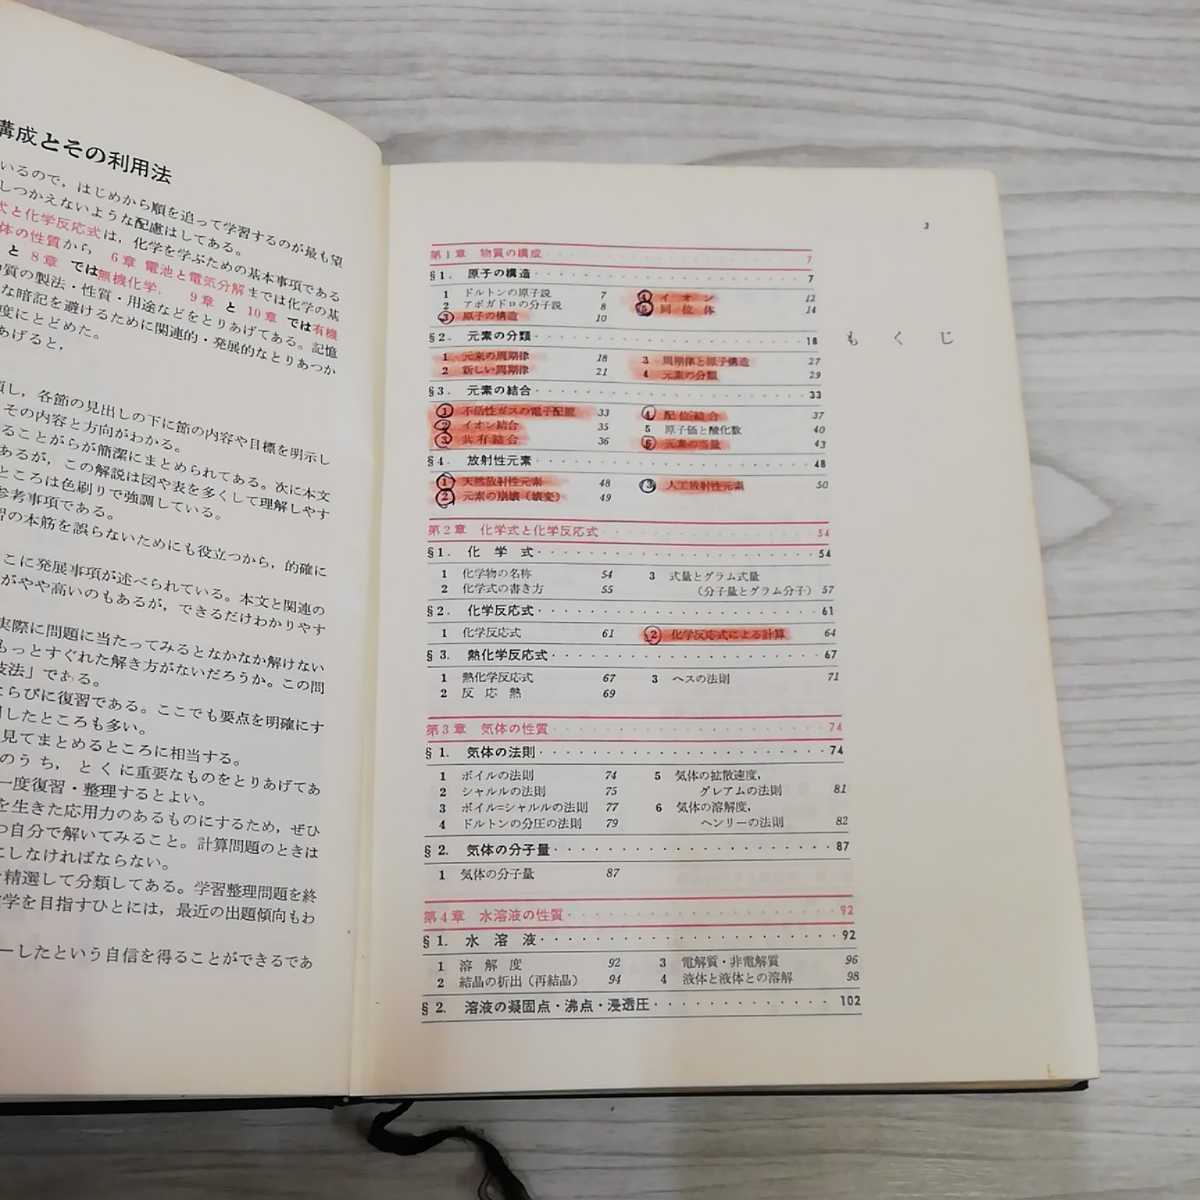 構成とその利用法
いるので，はじめから順を追って学習するのが最も望
しつかえないような配慮はしてある。
式と化学反応式は，化学を学ぶための基本事項である
体の性質から，6章 電池と電気分解までは化学の基
と 8章 では無機化学，9章 と 10章 では有機
物質の製法・性質・用途などをとりあげてある。記憶
な暗記を避けるために関連的・発展的なとりあつか
度にとどめた。
あげると，
頭し，各節の見出しの下に節の内容や目標を明示し
その内容と方向がわかる。
ることがらが簡潔にまとめられてある。次に本文
あるが，この解説は図や表を多くして理解しやす
ところは色刷りで強調している。
参考事項である。
習の本筋を誤らないためにも役立つから，的確に
こに発展事項が述べられている。本文と関連の
がやや高いのもあるが，できるだけわかりやす
実際に問題に当たってみるとなかなか解けない
もっとすぐれた解き方がないだろうか。この問
技法」である。
ならびに復習である。ここでも要点を明確にす
したところも多い。
見てまとめるところに相当する。
のうち，とくに重要なものをとりあげてあ
一度復習・整理するとよい。
を生きた応用力のあるものにするため，ぜひ
つ自分で解いてみること。計算問題のときは
にしなければならない。
精選して分類してある。学習整理問題を終
大学を目指すひとには，最近の出題傾向もわ
ーしたという自信を得ることができるであ
3
もくじ
第1章 物質の構成 7
§1. 原子の構造 7
1 ドルトンの原子説 7
2 アボガドロの分子説 8
3 原子の構造 10
4 イオン 12
5 同位体 14
§2. 元素の分類 18
1 元素の周期律 18
2 新しい周期律 21
3 周期律と原子構造 27
4 元素の分類 29
§3. 元素の結合 33
1 不活性ガスの電子配置 33
2 イオン結合 35
3 共有結合 36
4 配位結合 37
5 原子価と酸化数 40
6 元素の当量 43
§4. 放射性元素 48
1 天然放射性元素 48
2 元素の崩壊（壊変） 49
3 人工放射性元素 50
第2章 化学式と化学反応式 54
§1. 化学式 54
1 化学物の名称 54
2 化学式の書き方 55
3 式量とグラム式量
（分子量とグラム分子） 57
§2. 化学反応式 61
1 化学反応式 61
2 化学反応式による計算 64
§3. 熱化学反応式 67
1 熱化学反応式 67
2 反応熱 69
3 ヘスの法則 71
第3章 気体の性質 74
§1. 気体の法則 74
1 ボイルの法則 74
2 シャルルの法則 75
3 ボイル=シャルルの法則 77
4 ドルトンの分圧の法則 79
5 気体の拡散速度，
グレアムの法則 81
6 気体の溶解度，
ヘンリーの法則 82
§2. 気体の分子量 87
1 気体の分子量 87
第4章 水溶液の性質 92
§1. 水溶液 92
1 溶解度 92
2 結晶の析出（再結晶） 94
3 電解質・非電解質 96
4 液体と液体との溶解 98
§2. 溶液の凝固点・沸点・浸透圧 102